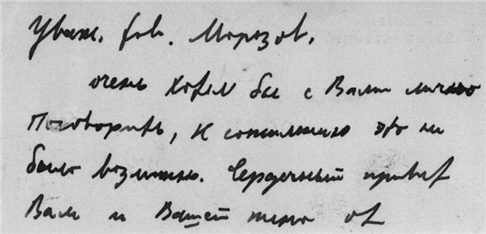 Уваж. тов. Морозов,
очень хотел бы с Вами лично
поговорить, к сожалению это не
было возможно. Сердечный привет
Вам и Вашей жене от